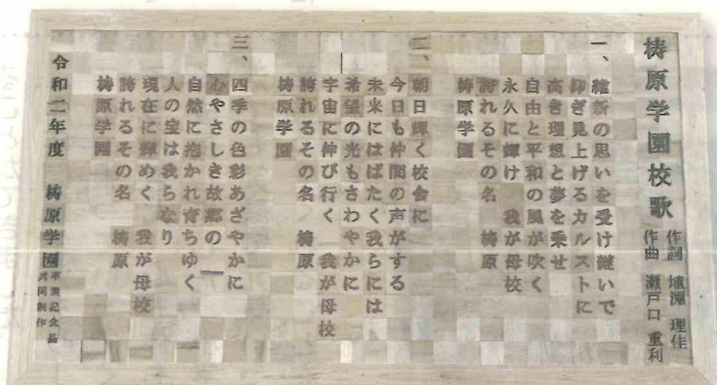 梼原学園校歌
作詞 壇淵 理佳
作曲 瀬戸口 重利
一、維新の思いを受け継いで
仰ぎ見上げるカルストに
高き理想と夢を乗せ
自由と平和の風が吹く
永久に輝け 我が母校
誇れるその名 梼原
梼原学園
二、朝日輝く校舎に
今日も仲間の声がする
未来にはばたく我らには
希望の光もさわやかに
宇宙に伸び行く 我が母校
誇れるその名 梼原
梼原学園
三、四季の色彩あざやかに
心やさしき故郷の
自然に抱かれ育ちゆく
人の宝は我らなり
現在に輝めく 我が母校
誇れるその名 梼原
梼原学園
令和二年度 梼原学園
卒業記念品
共同制作